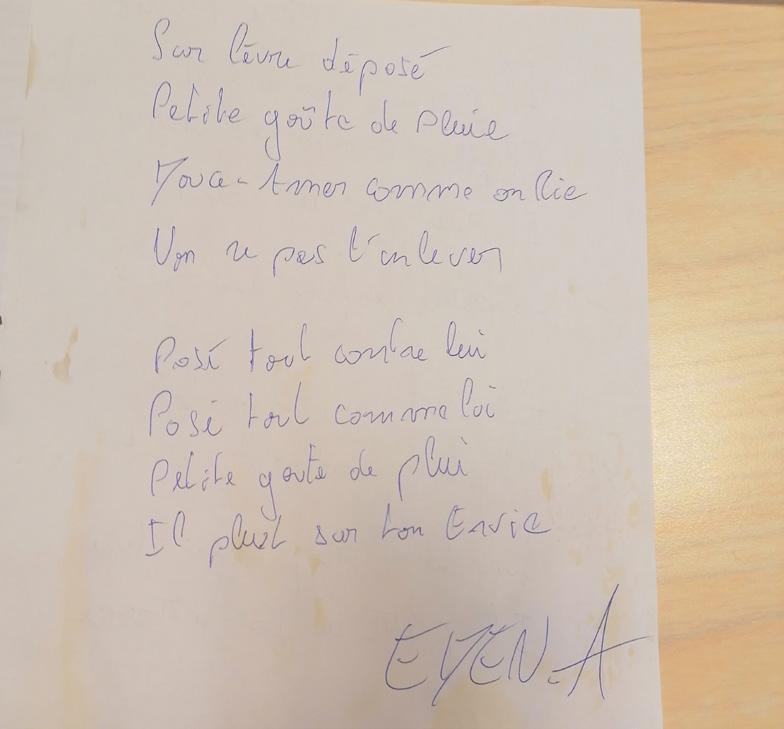 Sur lèvre déposé
Petite goûte de pluie
Douce-Amer comme on lie
Von ne pas t'enlever
Posé tout contre lui
Posé tout comme loi
Petite goute de plui
Il pluit sur ton Envie
EYEN.A